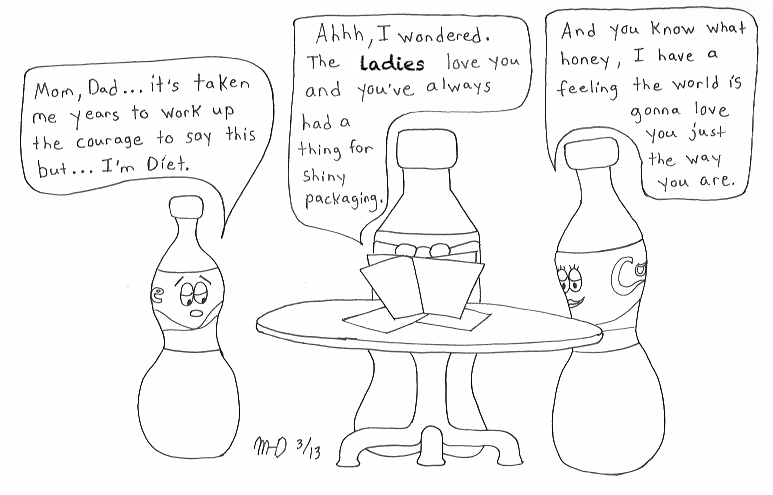 Mom, Dad... it's taken
me years to work up
the courage to say this
but... I'm Diet.
Ahhh, I wondered.
The ladies love you
and you've always
had a
thing for
shiny
packaging.
And you know what
honey, I have a
feeling the world is
gonna love
you just
the way
you are.
e
Co
3/13